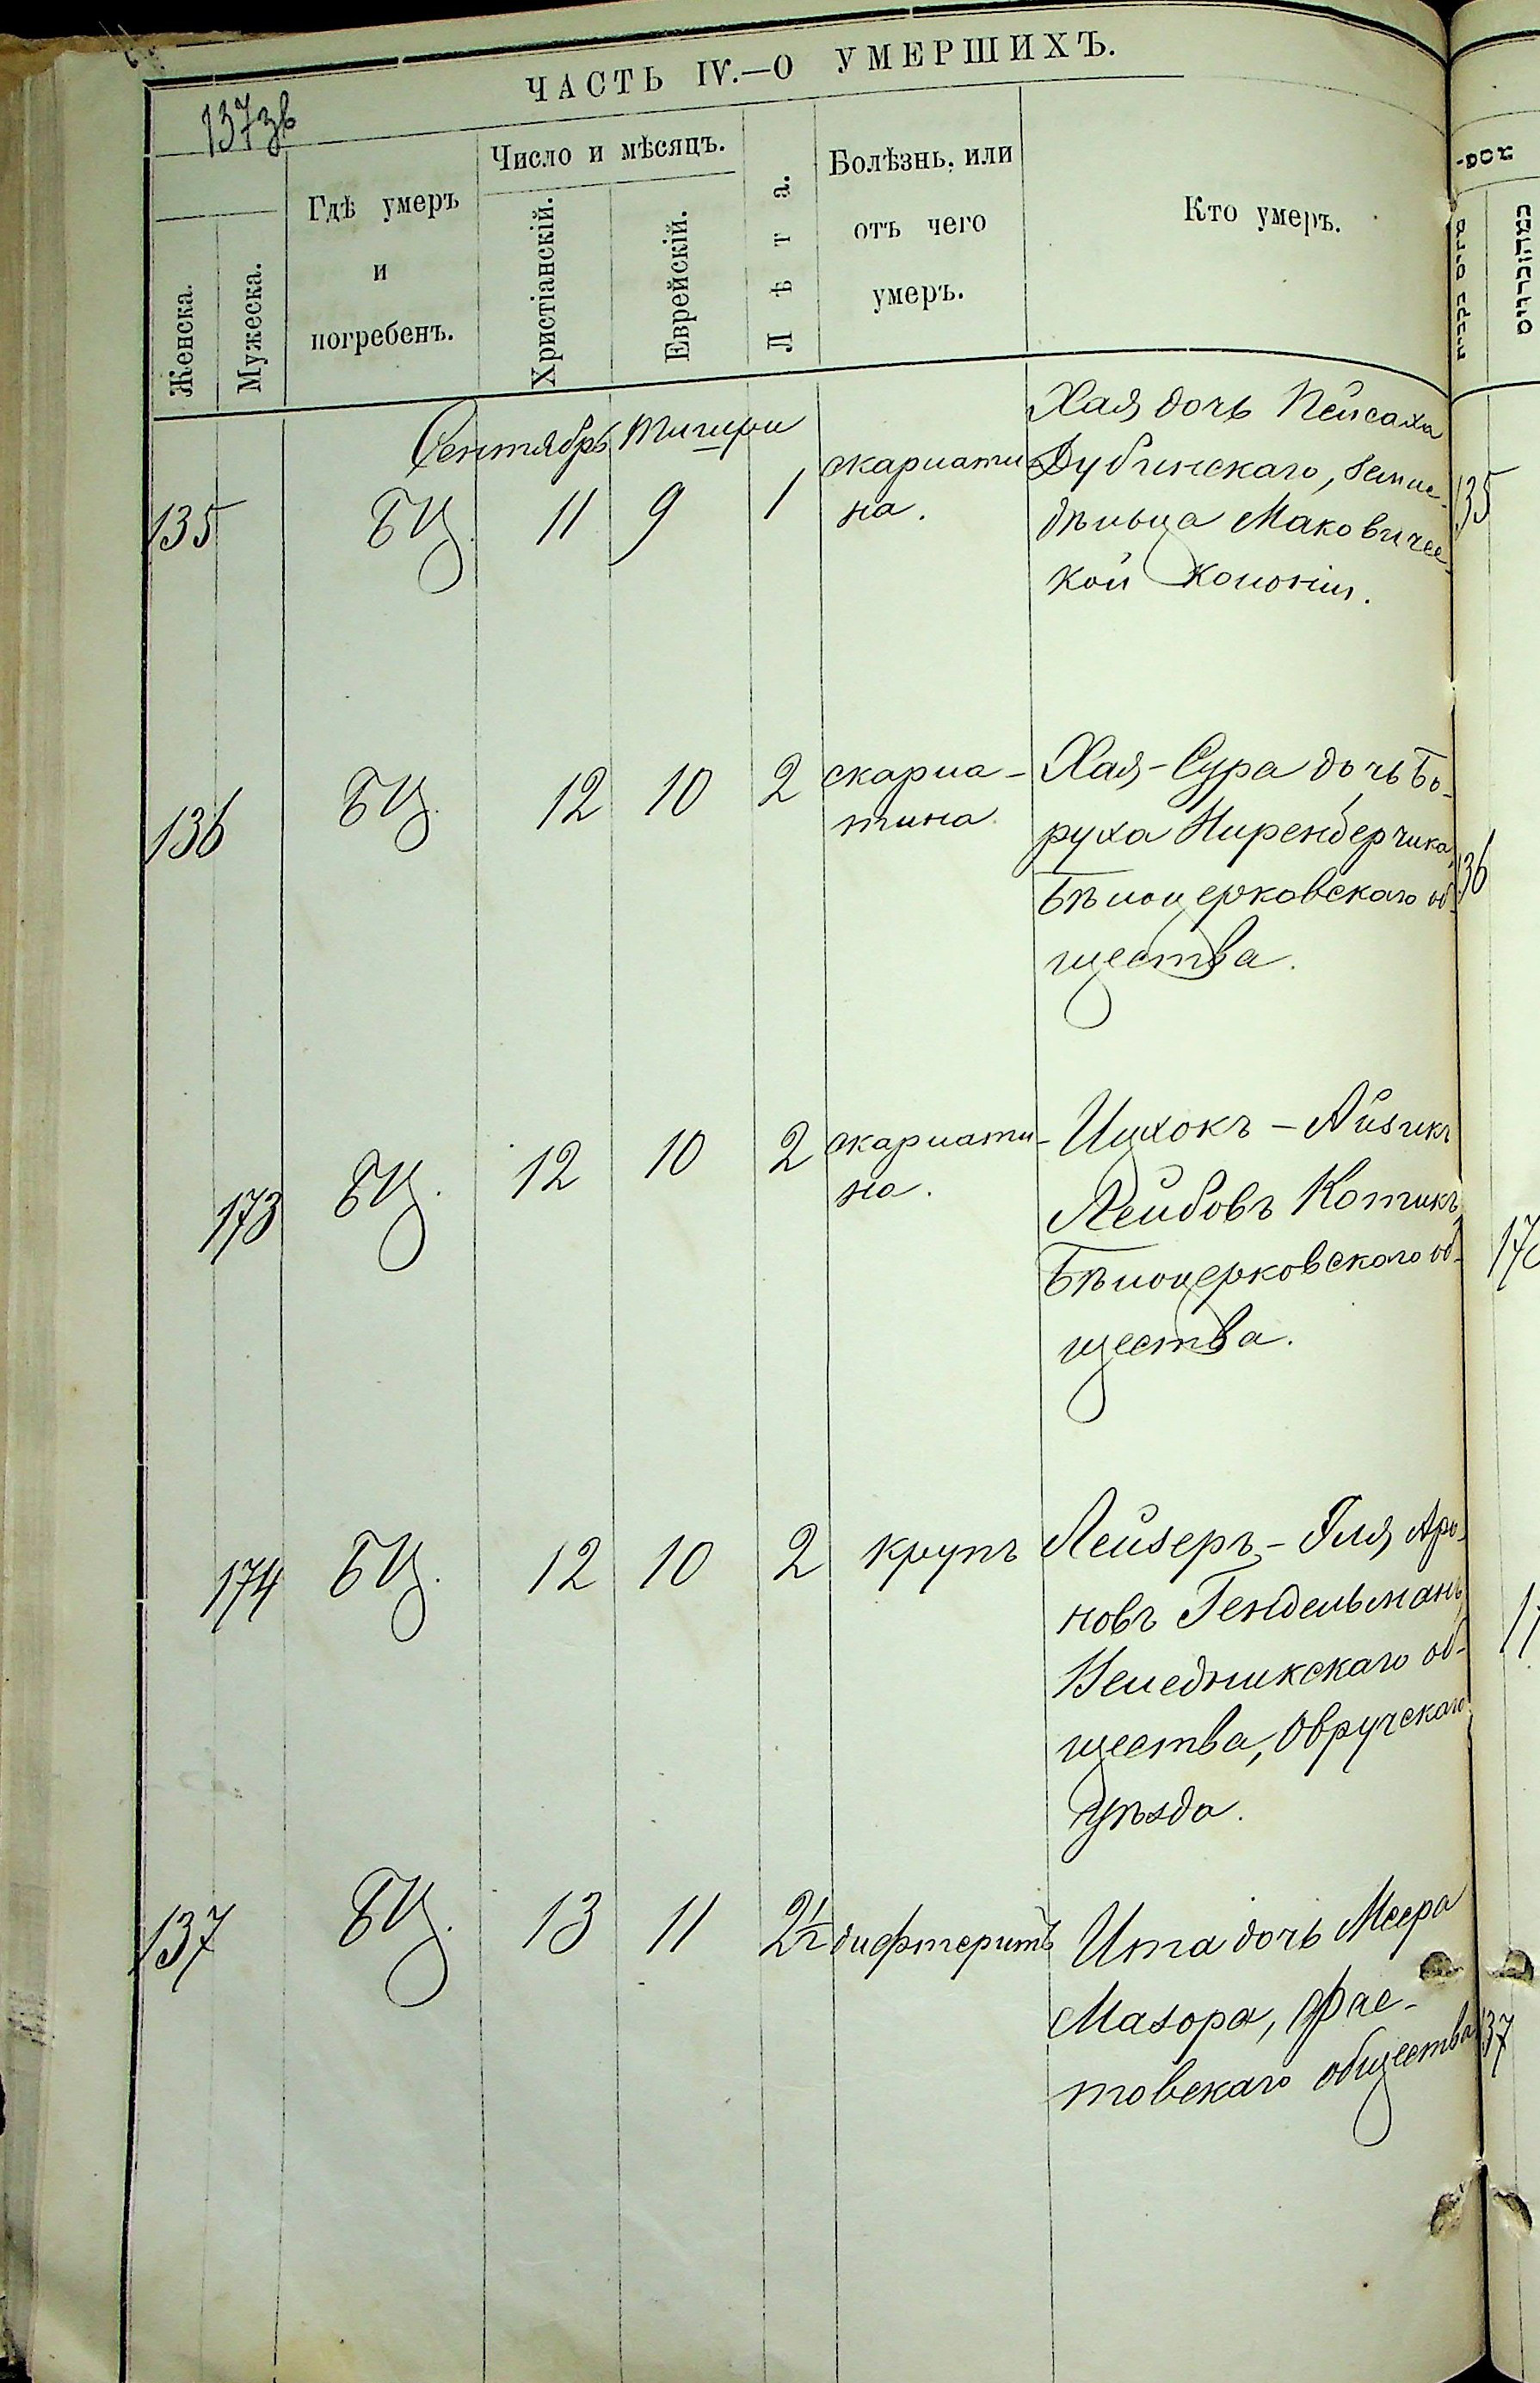 ЧАСТЬ IV.—О УМЕРШИХЪ.
137зв
Женска.
Мужеска.
Гдѣ умеръ
и
погребенъ.
Число и мѣсяцъ.
Христіанскій.
Еврейскій.
Лѣта.
Болѣзнь, или
отъ чего
умеръ.
Кто умеръ.
Сентябрь Тишри
135 БЦ. 11 9 1 скарлати
на.
Хая дочь Пейсаха
Дубинскаго,Земле-
дѣльца Маковичес-
кой Колоніи.
135
136 БЦ. 12 10 2 скарла-
тина
Хая-Сура дочь Бо-
руха Ниренберчика,
Бѣлоцерковскаго об-
щества.
136
173 БЦ. 12 10 2 скарлати-
на.
Ицхокъ-Айзикъ
Лейбовъ Котикъ,
Бѣлоцерковскаго об-
щества.
174 БЦ. 12 10 2 крупъ
Лейзеръ-Эля Аро-
новъ Гендельманъ,
Велединкскаго об-
щества, Овручскаго
уѣзда.
137 БЦ. 13 11 2½ дифтеритъ
Ита дочь Меера
Мазора, Фас-
товскаго общества
137